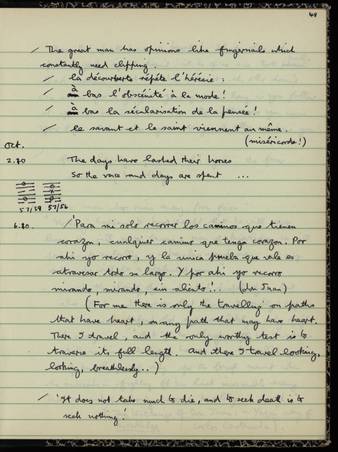 49
/ The great man has opinions like fingernails which
constantly need clipping.
/ la découverte répète l'hérésie.
/ à bas l'obscénité à la mode!
/ à bas la sécularisation de la pensée!
/ le savant et le saint viennent au même.
(miséricorde!)
Oct.
2.80 The days have lashed their horses
So the race and days are spent ...
57/59 57/56
6.80. / 'Para mi solo recorrer los caminos que tienen
corazon, cualquier camino que tenga corazon. Por
ahi yo recorro, y la unica prueba que vale es
atravesar todo su largo. Y por ahi yo recorro
mirando, mirando, sin aliento'!. (don Juan)
(For me there is only the travelling on paths
that have heart, on any path that may have heart.
There I travel, and the only worthy test is to
traverse its full length. And there I travel looking,
looking, breathlessly..)
/ 'It does not take much to die, and to seek death is to
seek nothing'.